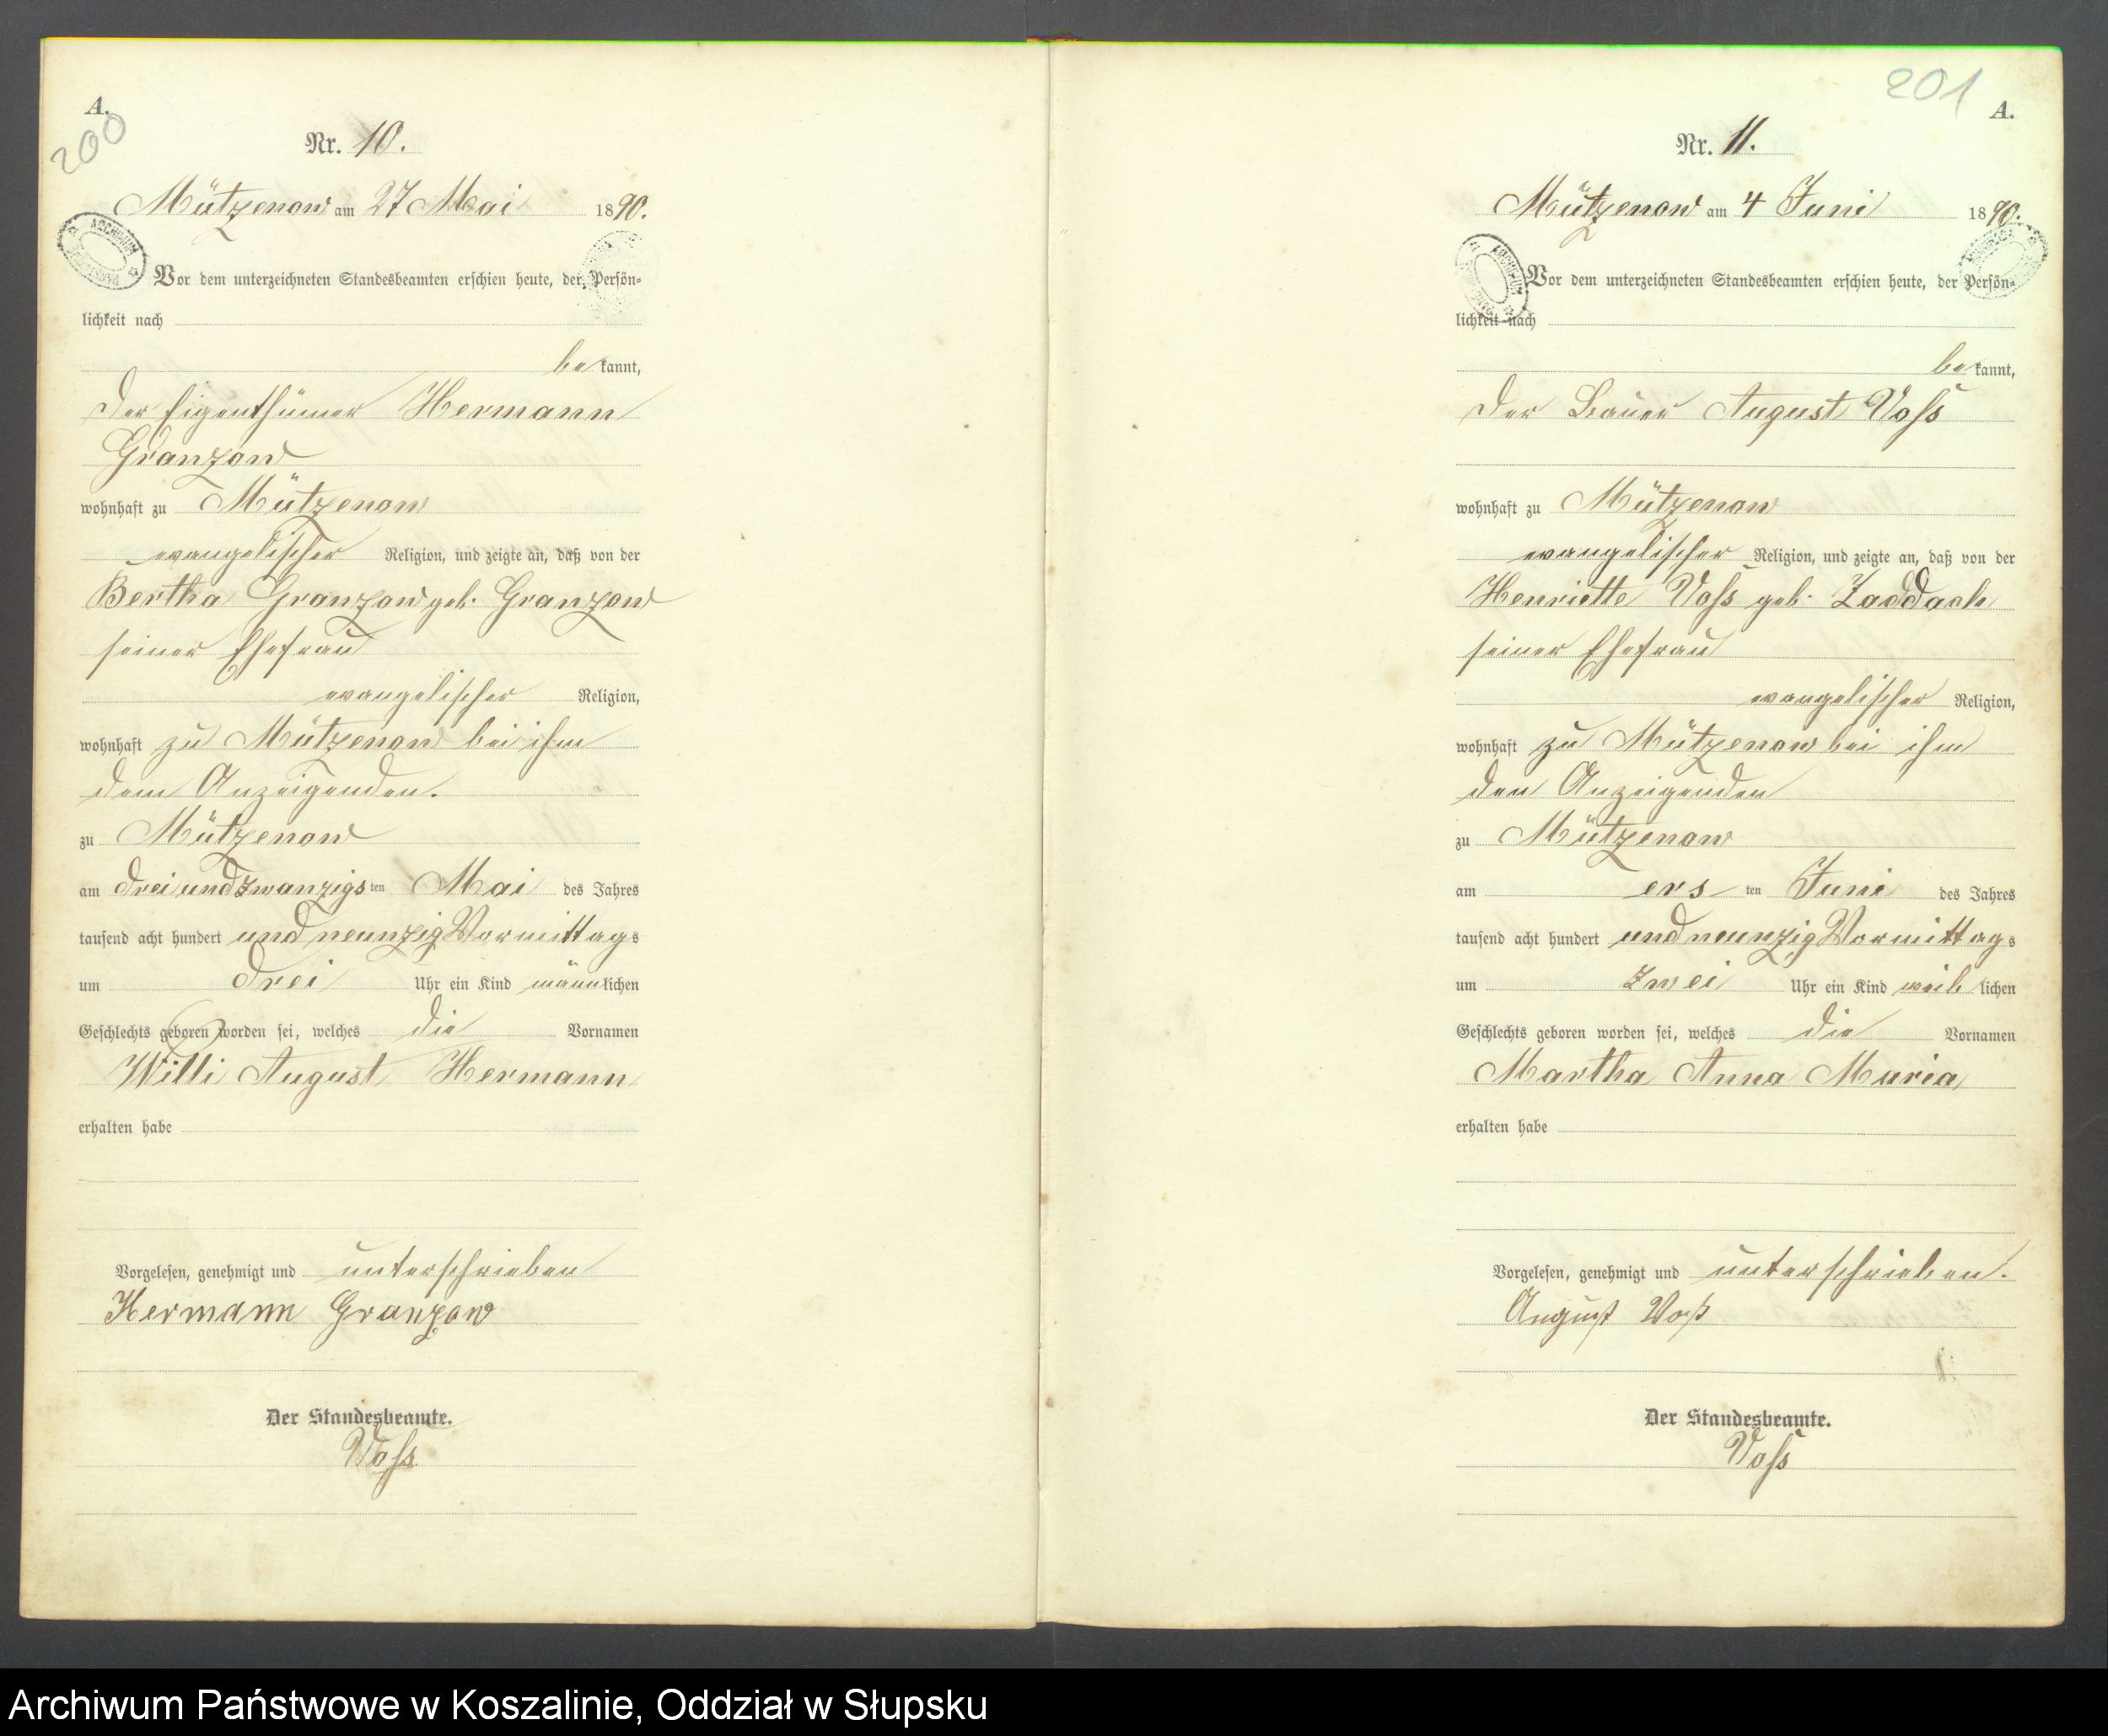 A.
200
Nr. 10.
Mützenow am 27 Mai 1890.
Vor dem unterzeichneten Standesbeamten erschien heute, der Persön-
lichkeit nach
bekannt,
der Eigenthümer Hermann
Granzow
wohnhaft zu Mützenow
evangelischer Religion, und zeigte an, daß von der
Bertha Granzow geb. Granzow
seiner Ehefrau
evangelischer Religion,
wohnhaft zu Mützenow bei ihm
dem Anzeigenden.
zu Mützenow
am drei und zwanzigsten Mai des Jahres
tausend acht hundert und neunzig Vormittags
um drei Uhr ein Kind männlichen
Geschlechts geboren worden sei, welches die Vornamen
Willi August Hermann
erhalten habe
Vorgelesen, genehmigt und unterschrieben
Hermann Granzow
Der Standesbeamte.
Voss
201
A.
Nr. 11.
Mützenow am 4 Juni 1890.
Vor dem unterzeichneten Standesbeamten erschien heute, der Persön-
lichkeit nach
bekannt,
der Bauer August Voss
wohnhaft zu Mützenow
evangelischer Religion, und zeigte an, daß von der
Henriette Voss geb. Zaddach
seiner Ehefrau
evangelischer Religion,
wohnhaft zu Mützenow bei ihm
den Anzeigenden
zu Mützenow
am ersten Juni des Jahres
tausend acht hundert und neunzig Vormittags
um zwei Uhr ein Kind weiblichen
Geschlechts geboren worden sei, welches die Vornamen
Martha Anna Maria
erhalten habe
Vorgelesen, genehmigt und unterschrieben.
August Voß
Der Standesbeamte.
Voss
Archiwum Państwowe w Koszalinie, Oddział w Słupsku